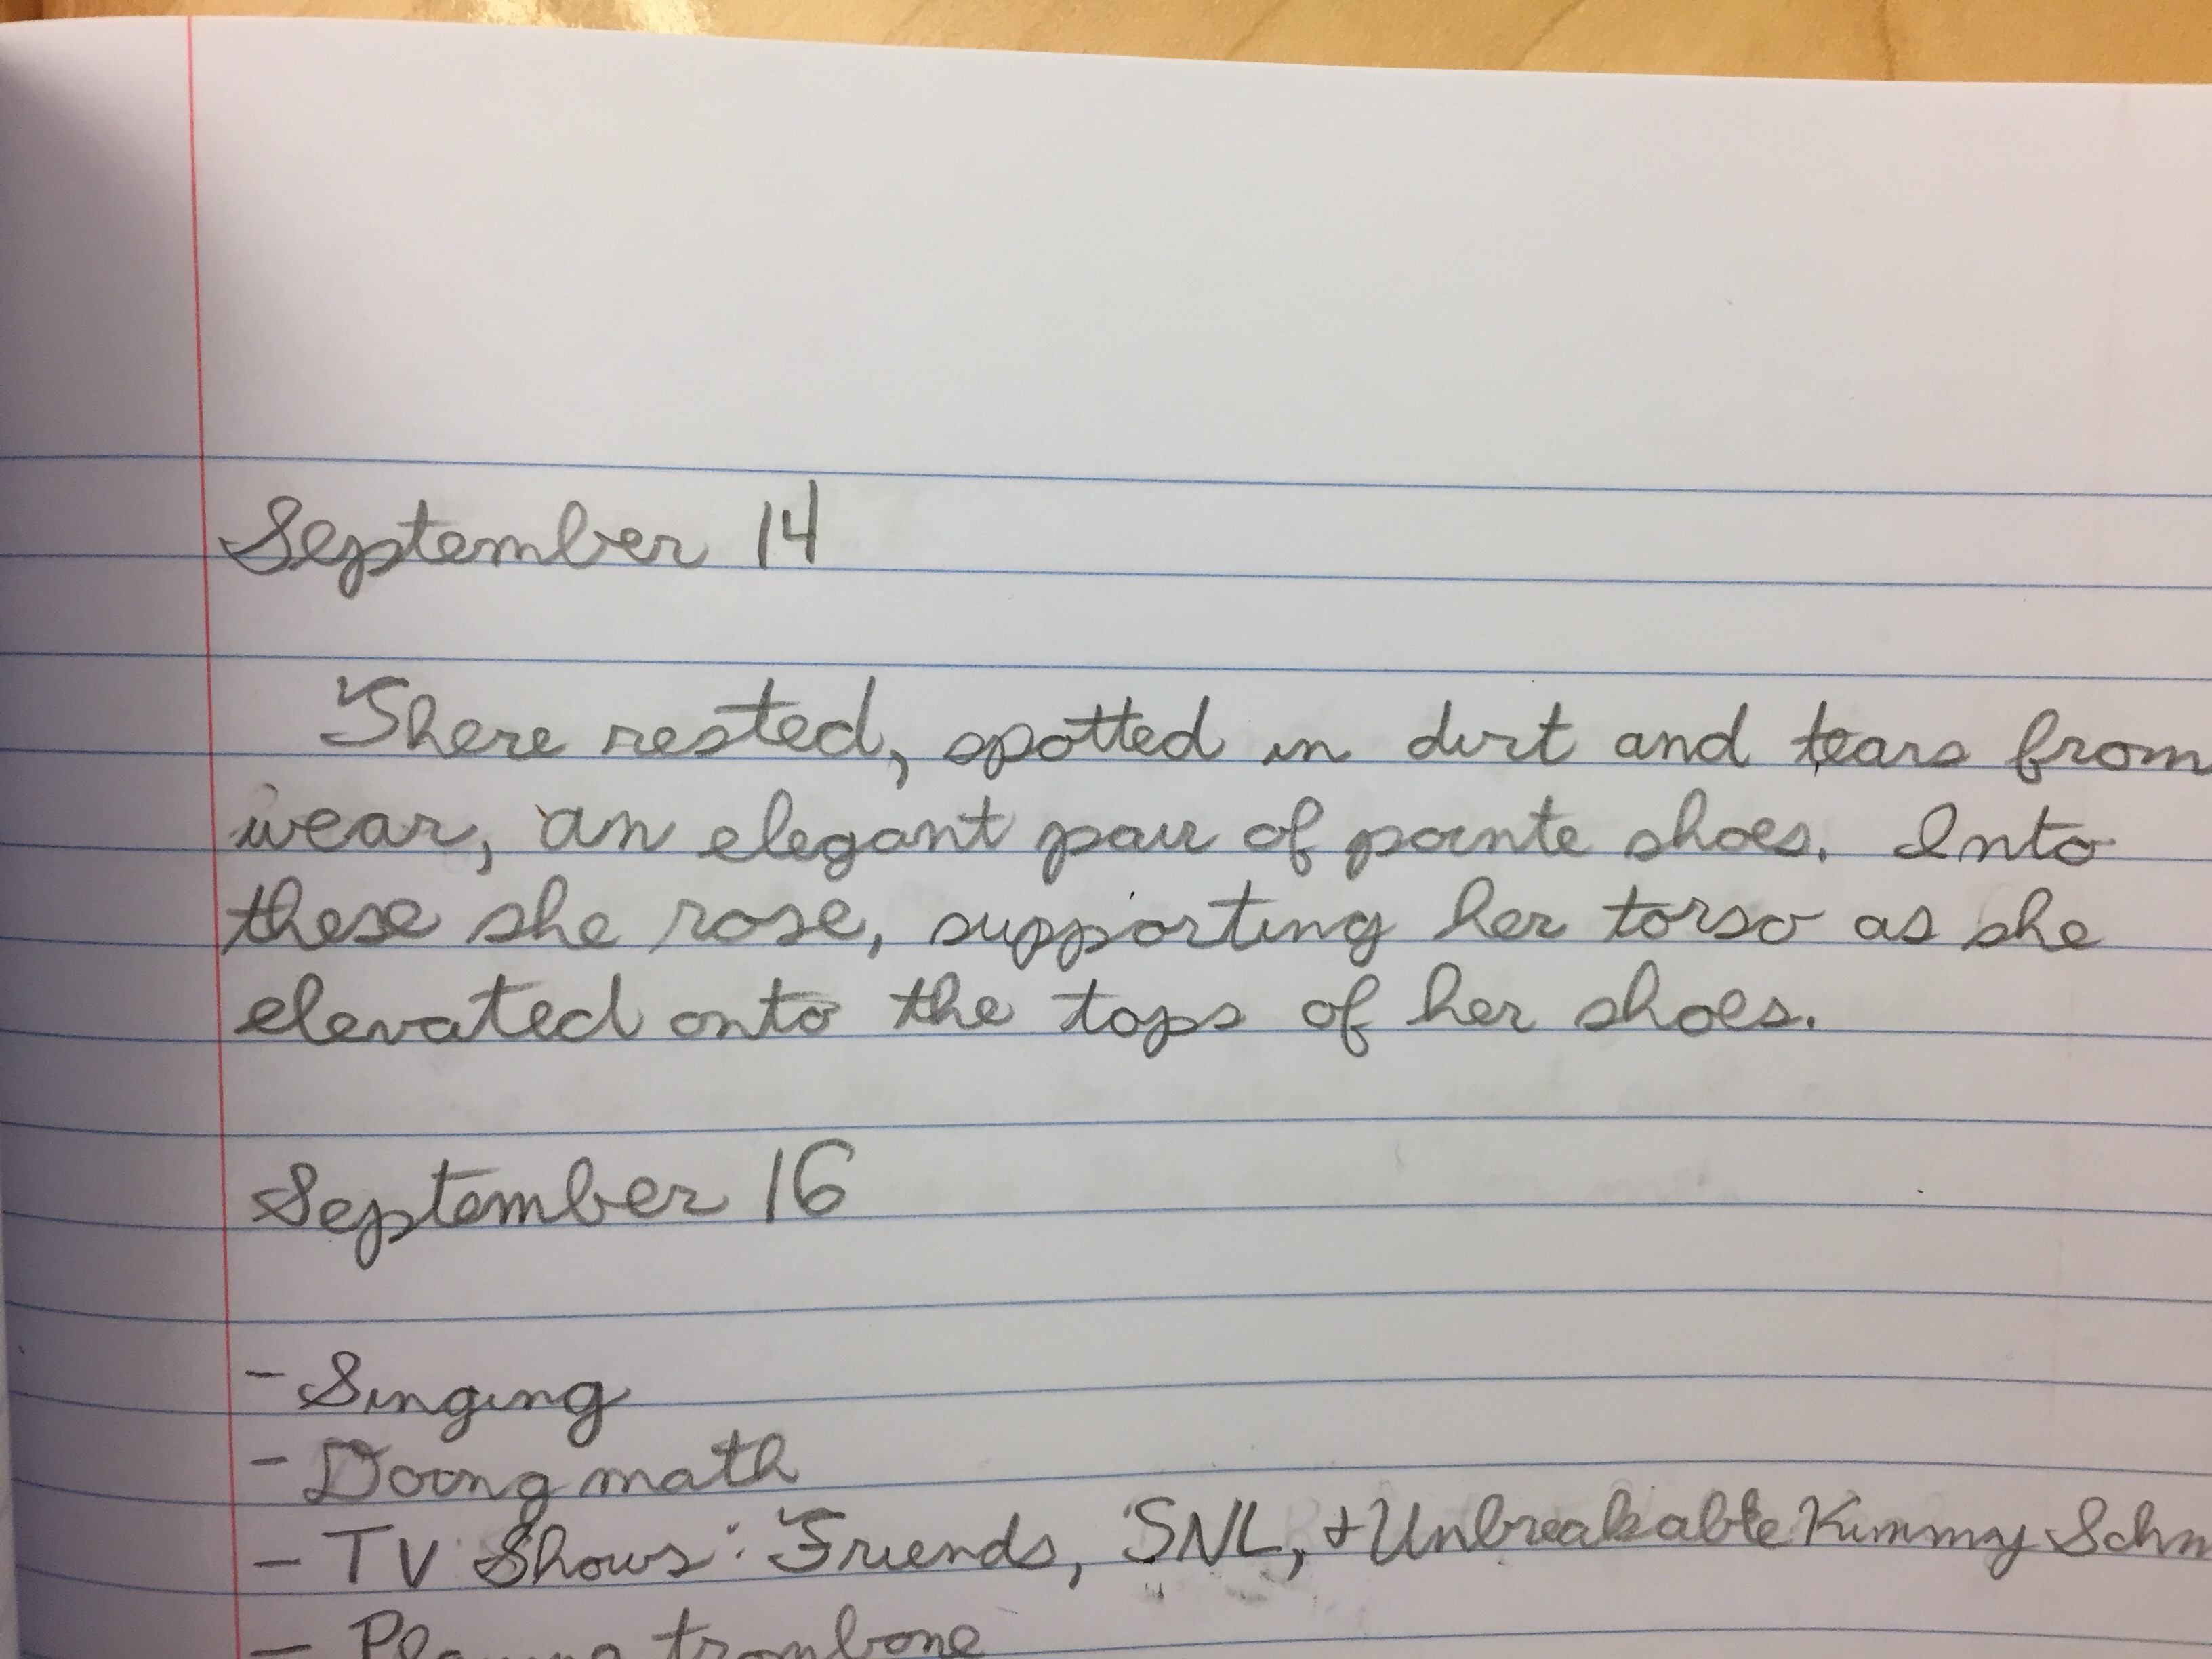 September 14
There rested, spotted in dirt and tears from
wear, an elegant pair of pointe shoes. Into
these she rose, supporting her torso as she
elevated onto the tops of her shoes.
September 16
- Singing
- Doing math
- TV Shows: Friends, SNL, + Unbreakable Kimmy Schm
- Playing trombone